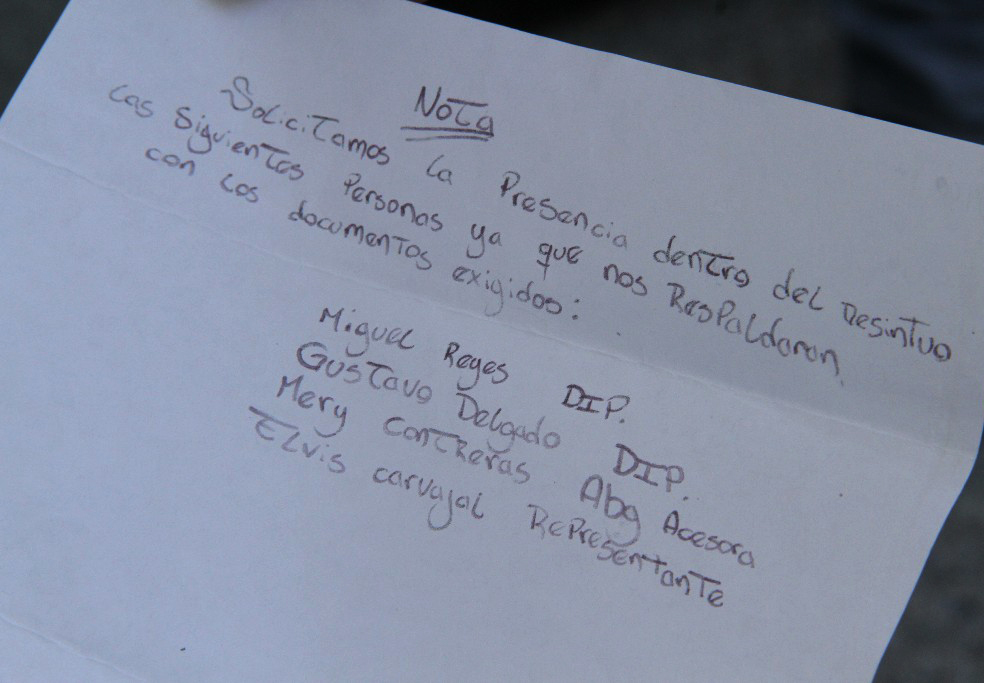 Nota
Solicitamos la Presencia dentro del Desintuo
las siguientes Personas ya que nos Respaldaron
con los documentos exigidos:
Miguel Reyes DIP.
Gustavo Delgado DIP.
Mery Contreras Abg Acesora
Elvis carvajal Representante